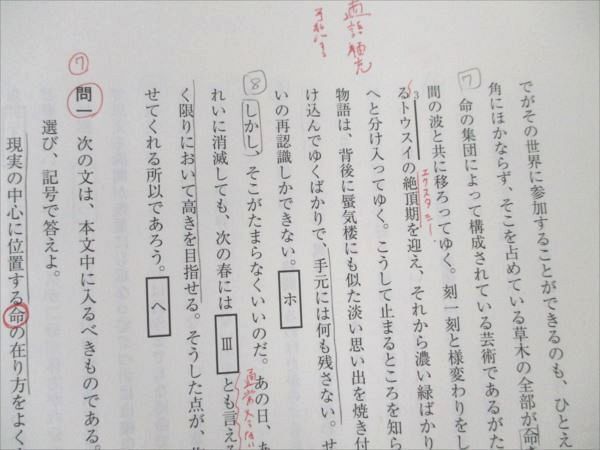 でがその世界に参加することができるのも、ひとえ
角にほかならず、そこを占めている草木の全部が命
7 命の集団によって構成されている芸術であるがた
間の波と共に移ろってゆく。刻一刻と様変わりをし
3るトウスイの絶頂期を迎え、それから濃い緑ばかり
エクスタシー
へと分け入ってゆく。こうして止まるところを知ら
物語は、背後に蜃気楼にも似た淡い思い出を焼き付
け込んでゆくばかりで、手元には何も残さない。せ
いの再認識しかできない。ホ
8 しかし、そこがたまらなくいいのだ。あの日、あ
れいに消滅しても、次の春にはⅢとも言える
く限りにおいて高きを目指せる。そうした点が、
せてくれる所以であろう。ヘ
⑦
問一 次の文は、本文中に入るべきものである。
選び、記号で答えよ。
現実の中心に位置する命の在り方をよく